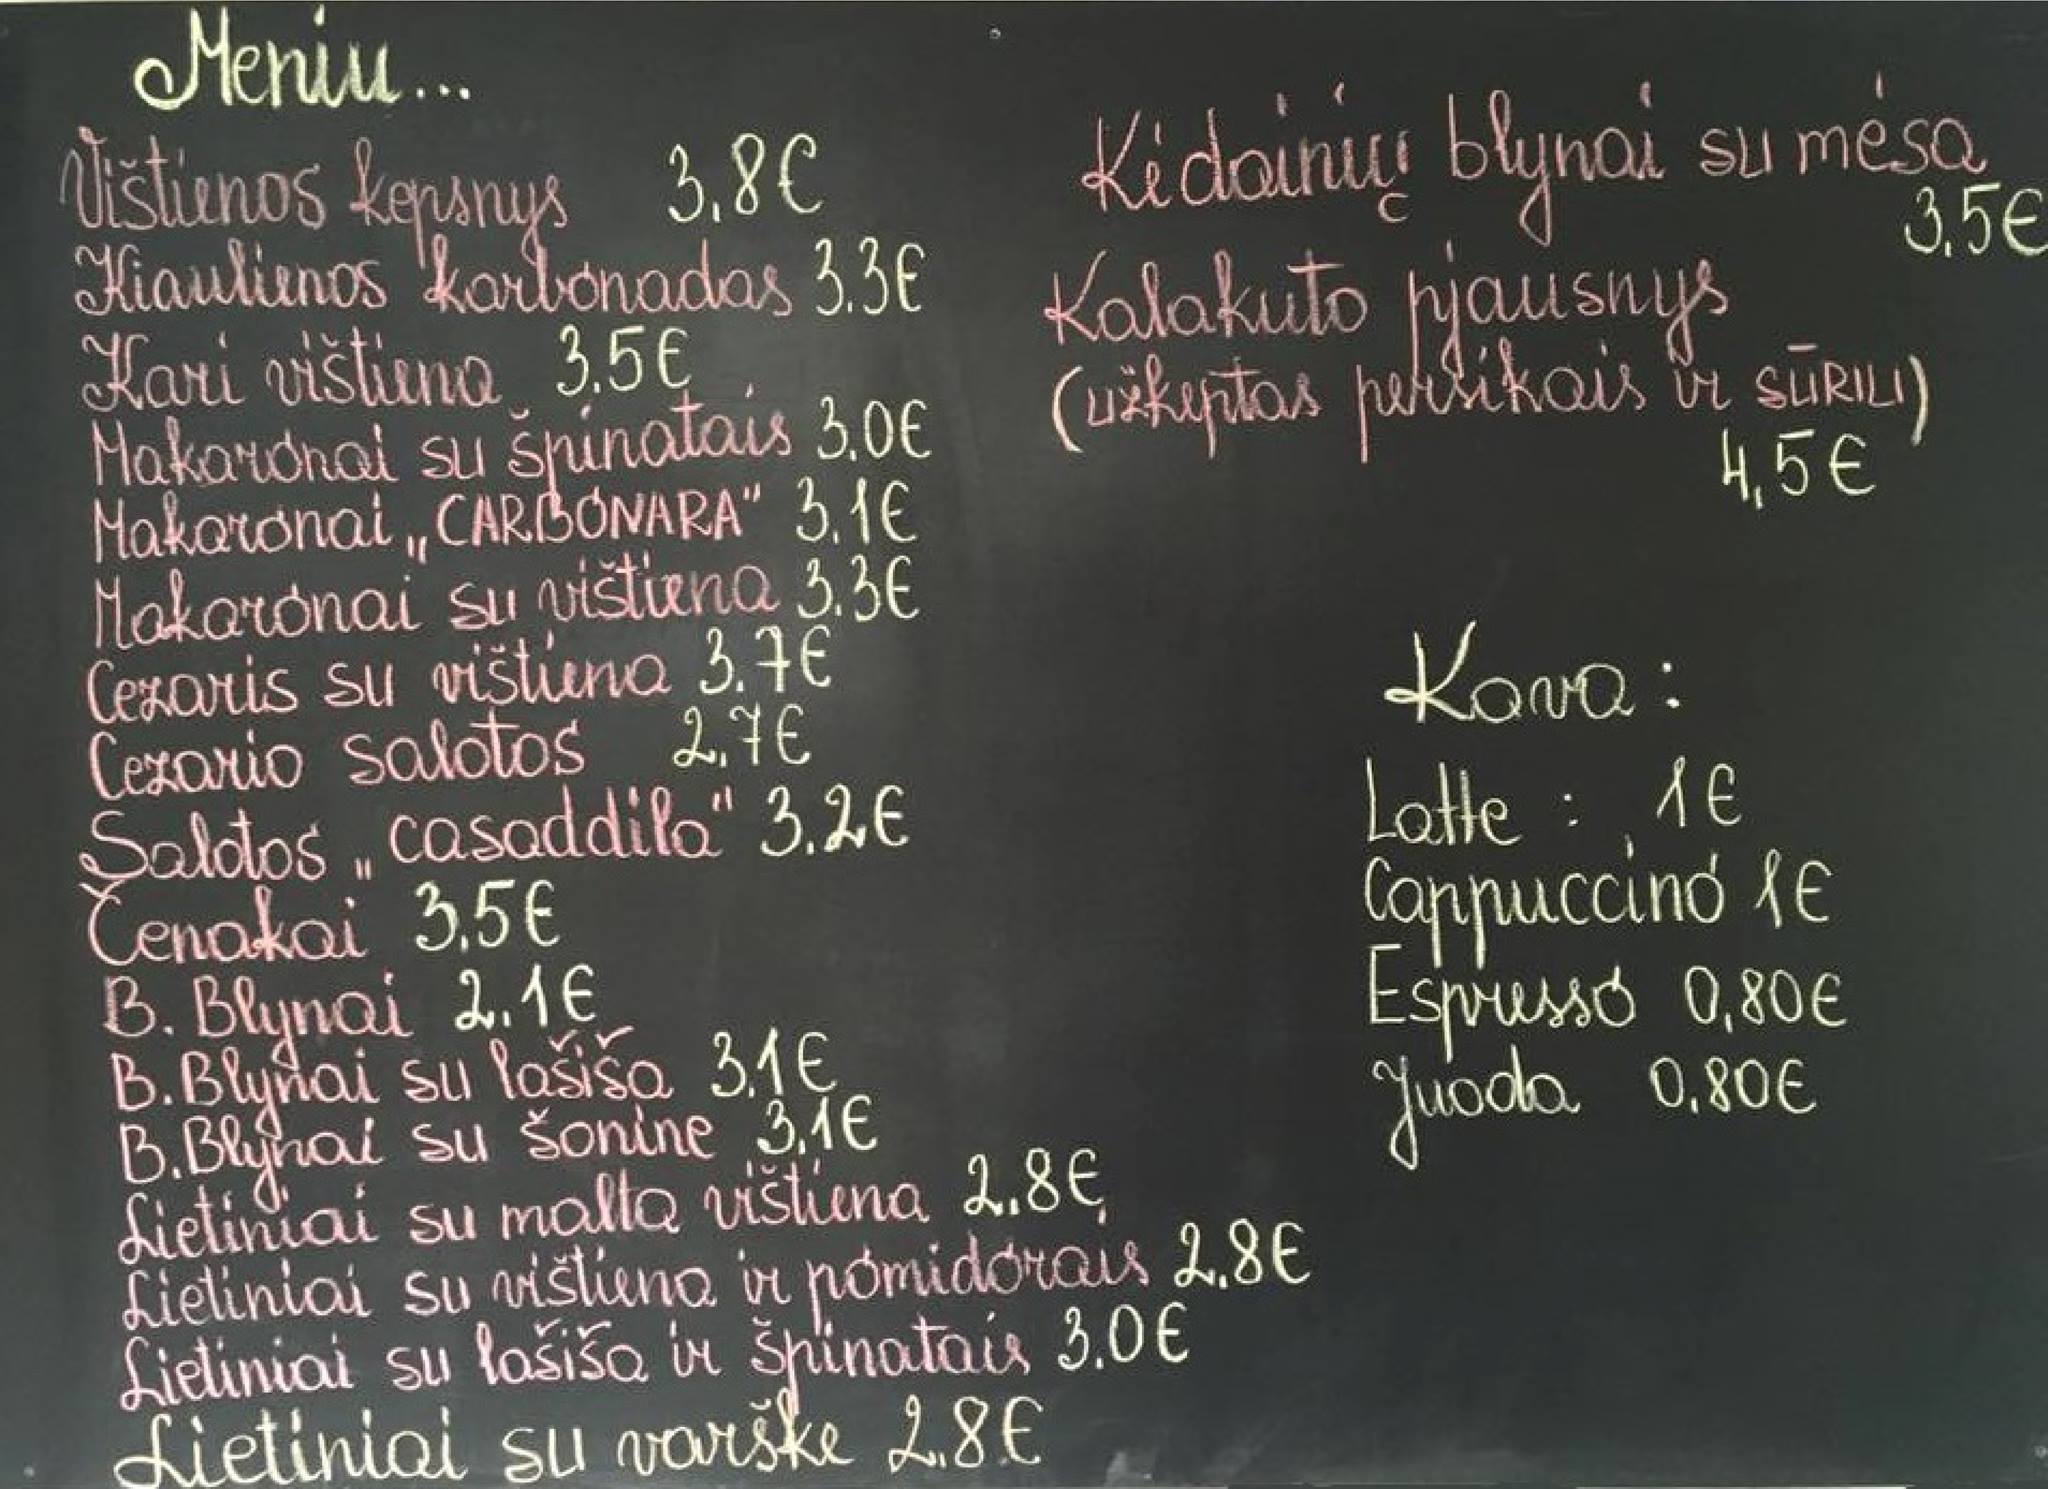 Meniu...
Vištienos kepsnys 3.8€
Kiaulienos karbonadas 3.3€
Kari vištiena 3.5€
Makaronai su špinatais 3.0€
Makaronai „CARBONARA" 3.1€
Makaronai su vištiena 3.3€
Cezaris su vištiena 3.7€
Cezario salotos 2.7€
Salotos „casaddila" 3.2€
Čenakai 3.5€
B. Blynai 2.1€
B.Blynai su lašiša 3.1€
B.Blynai su šonine 3.1€
Lietiniai su malta vištiena 2.8€
Lietiniai su vištiena ir pomidorais 2.8€
Lietiniai su lašiša ir špinatais 3.0€
Lietiniai su varške 2.8€
Kėdainių blynai su mėsa
3.5€
Kalakuto pjausnys
(užkeptas persikais ir SŪRIU)
4,5€
Kava:
Latte : 1€
Cappuccino 1€
Espresso 0,80€
Juoda 0.80€